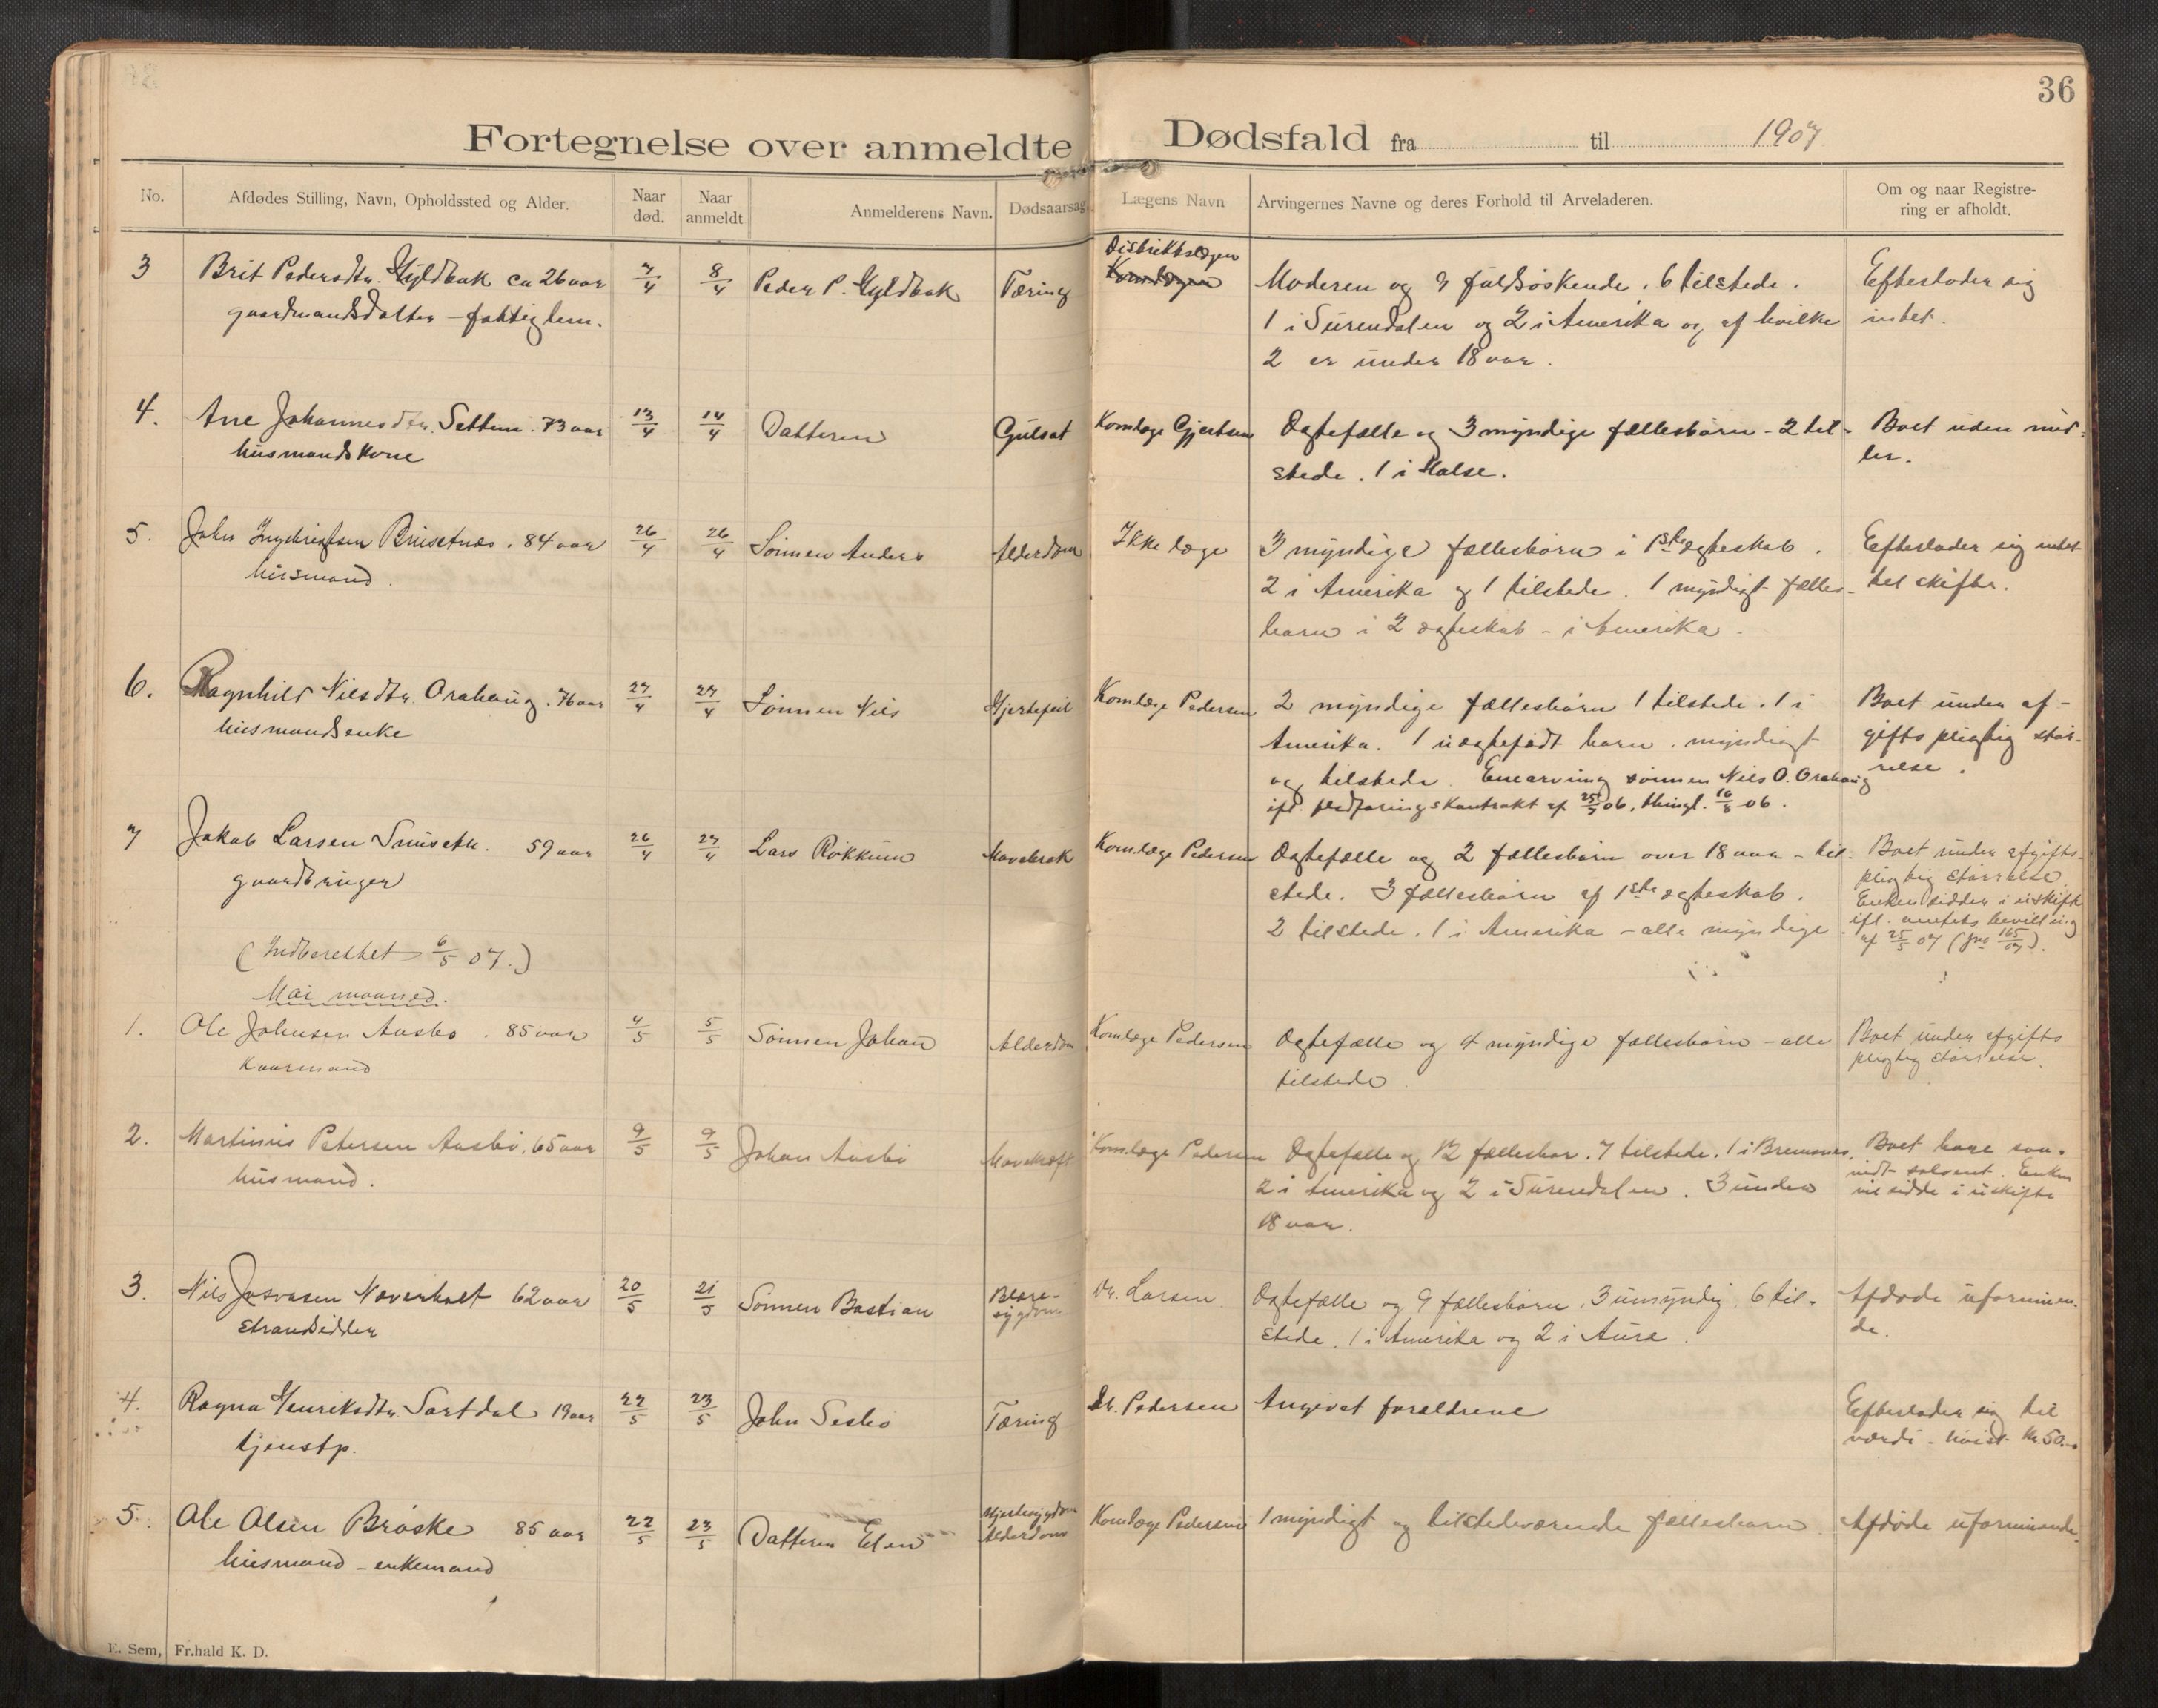 36
Fortegnelse over anmeldte Dødsfald fra til 1907
No. Afdødes Stilling, Navn, Opholdssted og Alder. Naar død. Naar anmeldt Anmelderens Navn. Dødsaarsag Lægens Navn Arvingernes Navne og deres Forhold til Arveladeren. Om og naar Registrering er afholdt.
3 Brit Pedersdtr. Hyldbak ca 26 aar 7/4 8/4 Peder P. Hyldbak Tæring Distriktslægen
gaardmandsdatter - fattiglem.
Moderen og 9 fuldsøskende. 6 tilstede.
1 i Surendalen og 2 i Amerika og af hvilke
2 er under 18 aar.
Efterlader sig
intet.
4. Ane Johannesdtr. Settem. 73 aar 13/4 14/4 Datteren Gulsot Komlæge Gjertsen
husmandskone
Ægtefælle og 3 myndige fællesbørn - 2 til-
stede. 1 i Halse.
Boet uden mid-
ler.
5. John Ingebrigtsen Brusetnæs. 84 aar 26/4 26/4 Sønnen Anders Alderdom Ikke læge
husmand.
3 myndige fællesbørn i 1ste ægteskab.
2 i Amerika og 1 tilstede. 1 myndigt fælles-
barn i 2 ægteskab - i Amerika.
Efterlader sig intet
til skifte.
6. Ragnhild Nilsdtr. Orahaug. 76 aar 27/4 27/4 Sønnen Nils Hjertefeil Komlæge Pedersen
husmandsenke
2 myndige fællesbørn 1 tilstede. 1 i
Amerika. 1 uægtefødt barn. myndigt
og tilstede. Enearving sønnen Nils O. Orahaug
ifl. fledføringskontrakt af 25/7 06, thingl. 16/8 06.
Boet under af-
giftspligtig stør-
relse.
7 Jakob Larsen Smisetn. 59 aar 26/4 27/4 Lars Røkkum Mavebrok Komlæge Pedersen
gaardbruger
Ægtefælle og 2 fællesbørn over 18 aar - til-
stede. 3 fællesbørn af 1ste ægteskab.
2 tilstede. 1 i Amerika - alle myndige
Boet under afgifts-
pligtig størrelse.
Enken sidder i uskifte
ifl. amtets bevilling
af 25/5 07 (jno 165/07).
(Indberettet 6/5 07.)
Mai maaned.
1. Ole Johnsen Aasbø. 85 aar 4/5 5/5 Sønnen Johan Alderdom Komlæge Pedersen
kaarmand
Ægtefælle og 4 myndige fællesbørn - alle
tilstede.
Boet under afgifts
pligtig størrelse.
2. Martinus Petersen Aasbø. 65 aar 9/5 9/5 Johan Aasbø Mavekræft Komlæge Pedersen
husmand.
Ægtefælle og 12 fællesbør. 7 tilstede. 1 i Bremsnes,
2 i Amerika og 2 i Surendalen. 3 under
18 aar.
Boet bare saa-
vidt solvent. Enken
vil sidde i uskifte
3. Nils Josvasen Næverholt 62 aar 20/5 21/5 Sønnen Bastian Blære-
sygdom Dr. Larsen
strandsidder
Ægtefælle og 9 fællesbørn. 3 umyndig. 6 til-
stede. 1 i Amerika og 2 i Aure.
Afdøde uformuen-
de.
4. Ragna Henriksdtr. Sartdal 19 aar 22/5 23/5 John Sesbø Tæring Dr. Pedersen
tjenstp.
Angivet forældrene
Efterlader sig til
værdi - høist Kr. 50.-
5. Ole Olsen Brøske 85 aar 22/5 23/5 Datteren Elen Hjertesygdom
Alderdom Komlæge Pedersen
husmand - enkemand
1 myndigt og tilstedeværende fællesbarn.
Afdøde uformuende.
E. Sem, Fr.hald K. D.